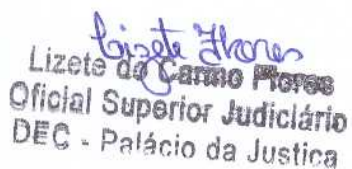 Lizete Flores
Lizete do Carmo Flores
Oficial Superior Judiciário
DEC - Palácio da Justiça